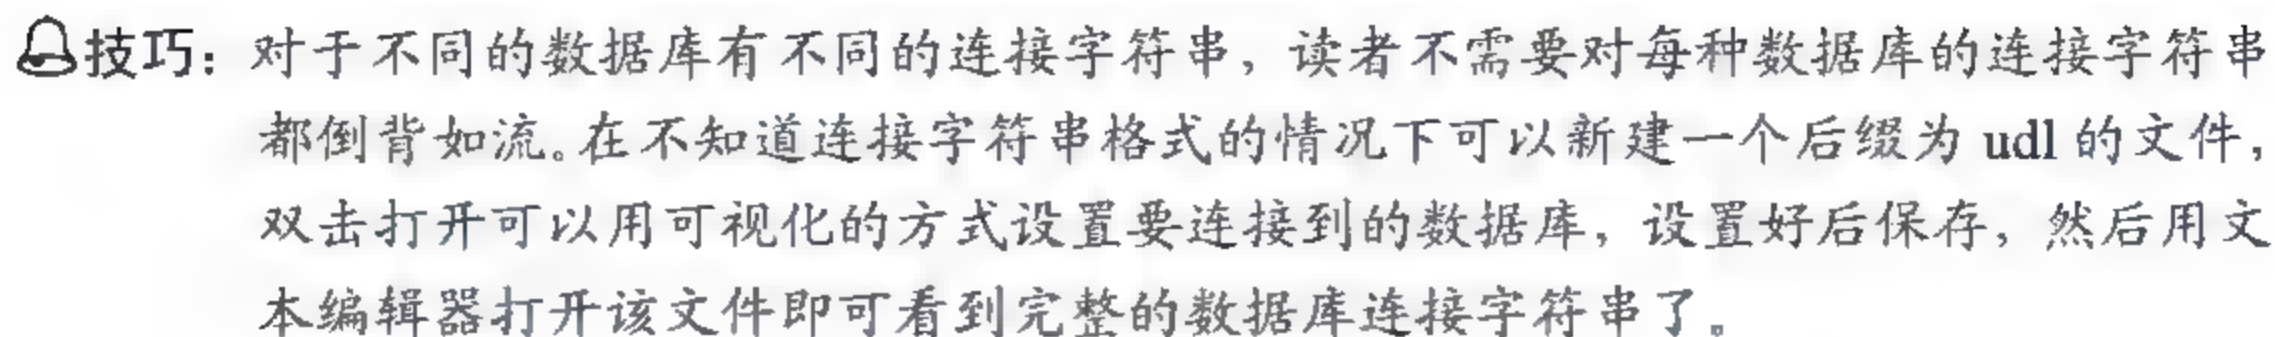 技巧：对于不同的数据库有不同的连接字符串，读者不需要对每种数据库的连接字符串
都倒背如流。在不知道连接字符串格式的情况下可以新建一个后缀为 udl 的文件，
双击打开可以用可视化的方式设置要连接到的数据库，设置好后保存，然后用文
本编辑器打开该文件即可看到完整的数据库连接字符串了。